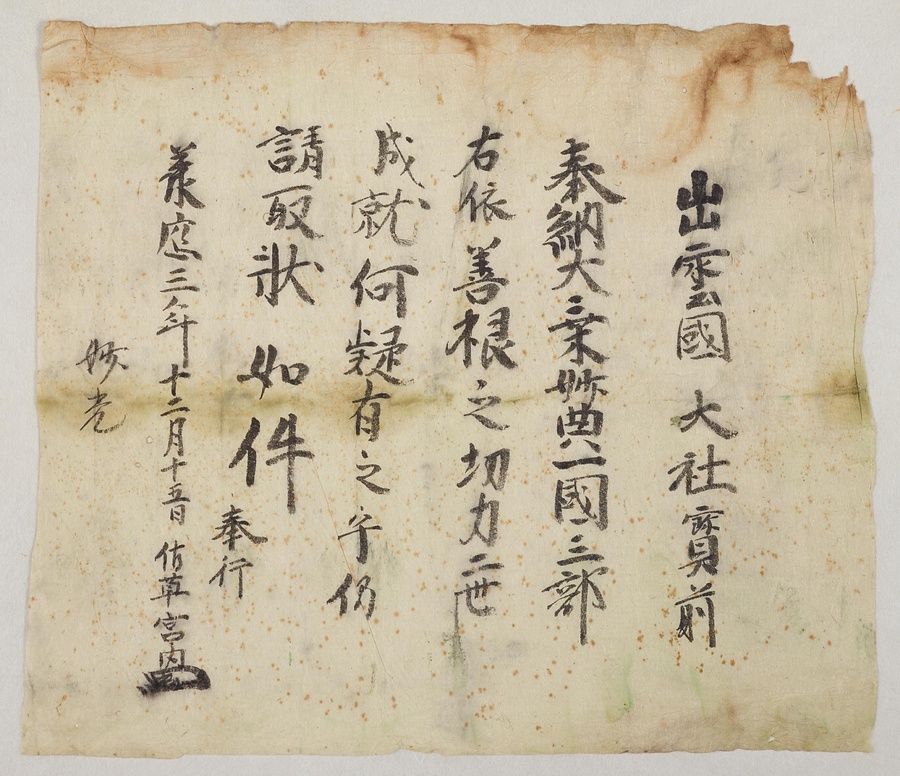 出雲國 大社寳前
奉納大乗妙典一國三部
右依善根之切力二世
成就何疑有之乎仍
請取状如件
奉行
承應三年十二月十五日 佐草宮内
妙光